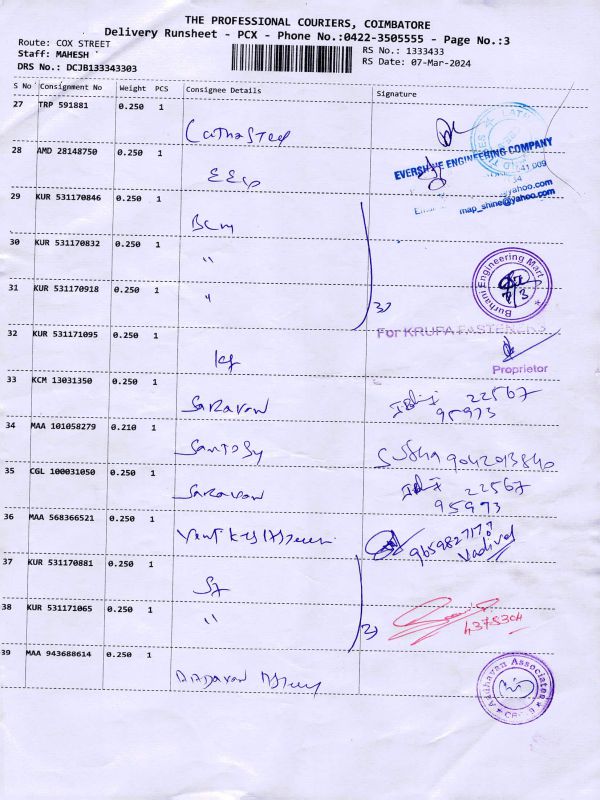 THE PROFESSIONAL COURIERS, COIMBATORE
Delivery Runsheet - PCX - Phone No.:0422-3505555 - Page No.:3
Route: COX STREET
RS No.: 1333433
Staff: MAHESH
RS Date: 07-Mar-2024
DRS No.: DCJB133343303
S No Consignment No Weight PCS Consignee Details Signature
27 TRP 591881 0.250 1
28 AMD 28148750 0.250 1
EVERSHINE ENGINEERING COMPANY
29 KUR 531170846 0.250 1
yahoo.com
map_shine@yahoo.com
Bcm
30 KUR 531170832 0.250 1
"
Burhani Engineering Mart
31 KUR 531170918 0.250 1
"
32 KUR 531171095 0.250 1
For KRUPA FASTENERS
Kf
Proprietor
33 KCM 13031350 0.250 1
Saravan 22567
95973
34 MAA 101058279 0.210 1
Santosy Sutha 9042013840
35 CGL 100031050 0.250 1
Saravan 22567
95973
36 MAA 568366521 0.250 1
Vadivel
37 KUR 531170881 0.250 1
38 KUR 531171065 0.250 1
"
4375304
39 MAA 943688614 0.250 1
Aadhavan Associates